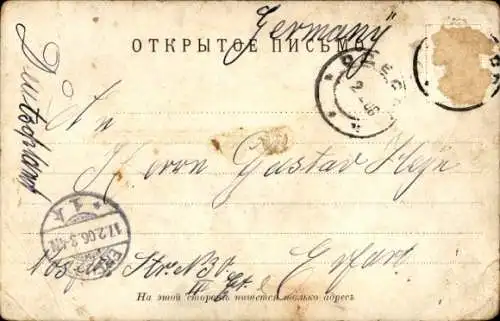 "Germany"
ОТКРЫТОЕ ПИСЬМО
Deutschland
An
Herrn Gustav Heyn
Erfurt
Str. No 30
III Et.
17.2.06.3-4N.
* 1 k
На этой сторонѣ пишется только адресъ